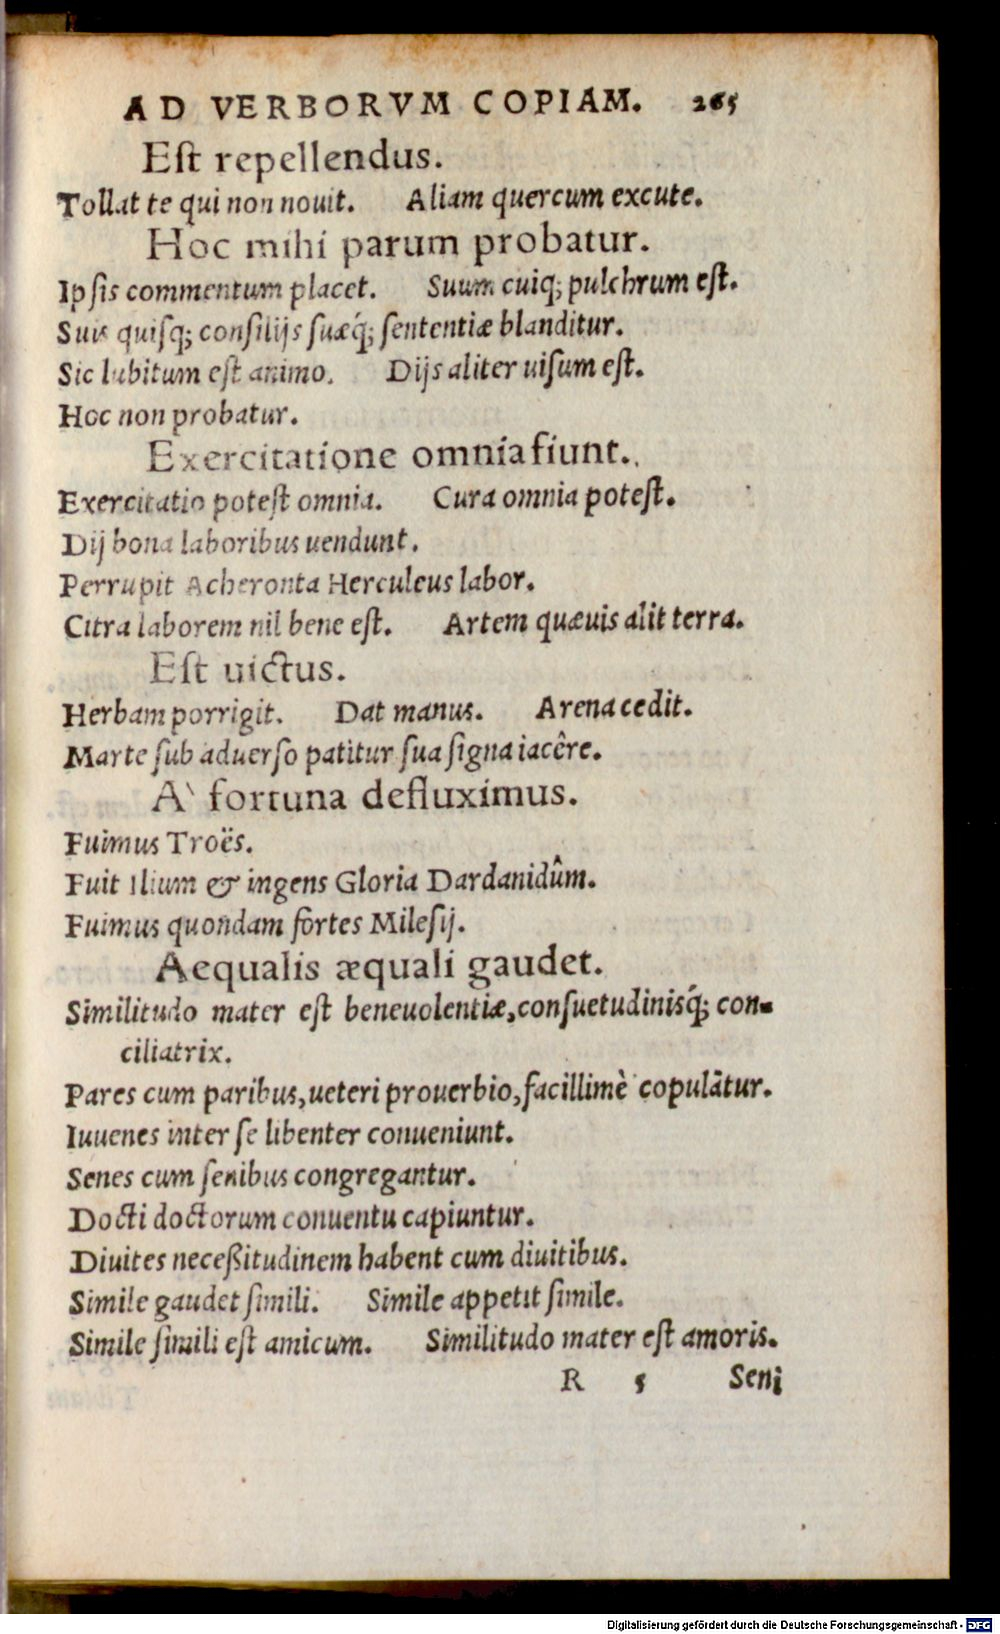 AD VERBORVM COPIAM. 265
Eſt repellendus.
Tollat te qui non nouit. Aliam quercum excute.
Hoc mihi parum probatur.
Ipſis commentum placet. Suum cuiq; pulchrum eſt.
Suis quiſq; conſilijs ſuæq́; ſententiæ blanditur.
Sic lubitum eſt animo. Dijs aliter uiſum eſt.
Hoc non probatur.
Exercitatione omnia fiunt.
Exercitatio poteſt omnia. Cura omnia poteſt.
Dij bona laboribus uendunt.
Perrupit Acheronta Herculeus labor.
Citra laborem nil bene eſt. Artem quæuis alit terra.
Eſt uictus.
Herbam porrigit. Dat manus. Arena cedit.
Marte ſub aduerſo patitur ſua ſigna iacêre.
A` fortuna defluximus.
Fuimus Troës.
Fuit Ilium & ingens Gloria Dardanidûm.
Fuimus quondam fortes Mileſij.
Aequalis æquali gaudet.
Similitudo mater eſt beneuolentiæ, conſuetudinisq́; con-
ciliatrix.
Pares cum paribus, ueteri prouerbio, facillimè copulãtur.
Iuuenes inter ſe libenter conueniunt.
Senes cum ſenibus congregantur.
Docti doctorum conuentu capiuntur.
Diuites neceßitudinem habent cum diuitibus.
Simile gaudet ſimili. Simile appetit ſimile.
Simile ſimili eſt amicum. Similitudo mater eſt amoris.
R 5 Seni
Digitalisierung gefördert durch die Deutsche Forschungsgemeinschaft - DFG